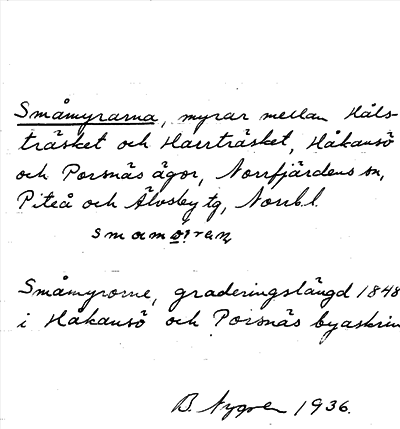 Småmyrarna, myrar mellan Håls-
träsket och Harrträsket, Håkansö
och Porsnäs ägor, Norrfjärdens sn,
Piteå och Älvsby tg, Norrb. l.
Småmyrorne, graderingslängd 1848
i Håkansö och Porsnäs byaskrin
B. Nygren 1936.